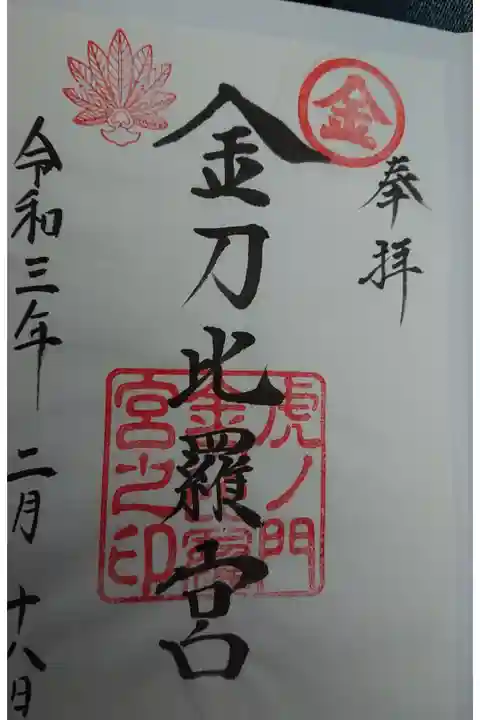 奉拝
金
金刀比羅宮
虎ノ門
宮之印
令和三年 二月 十八日